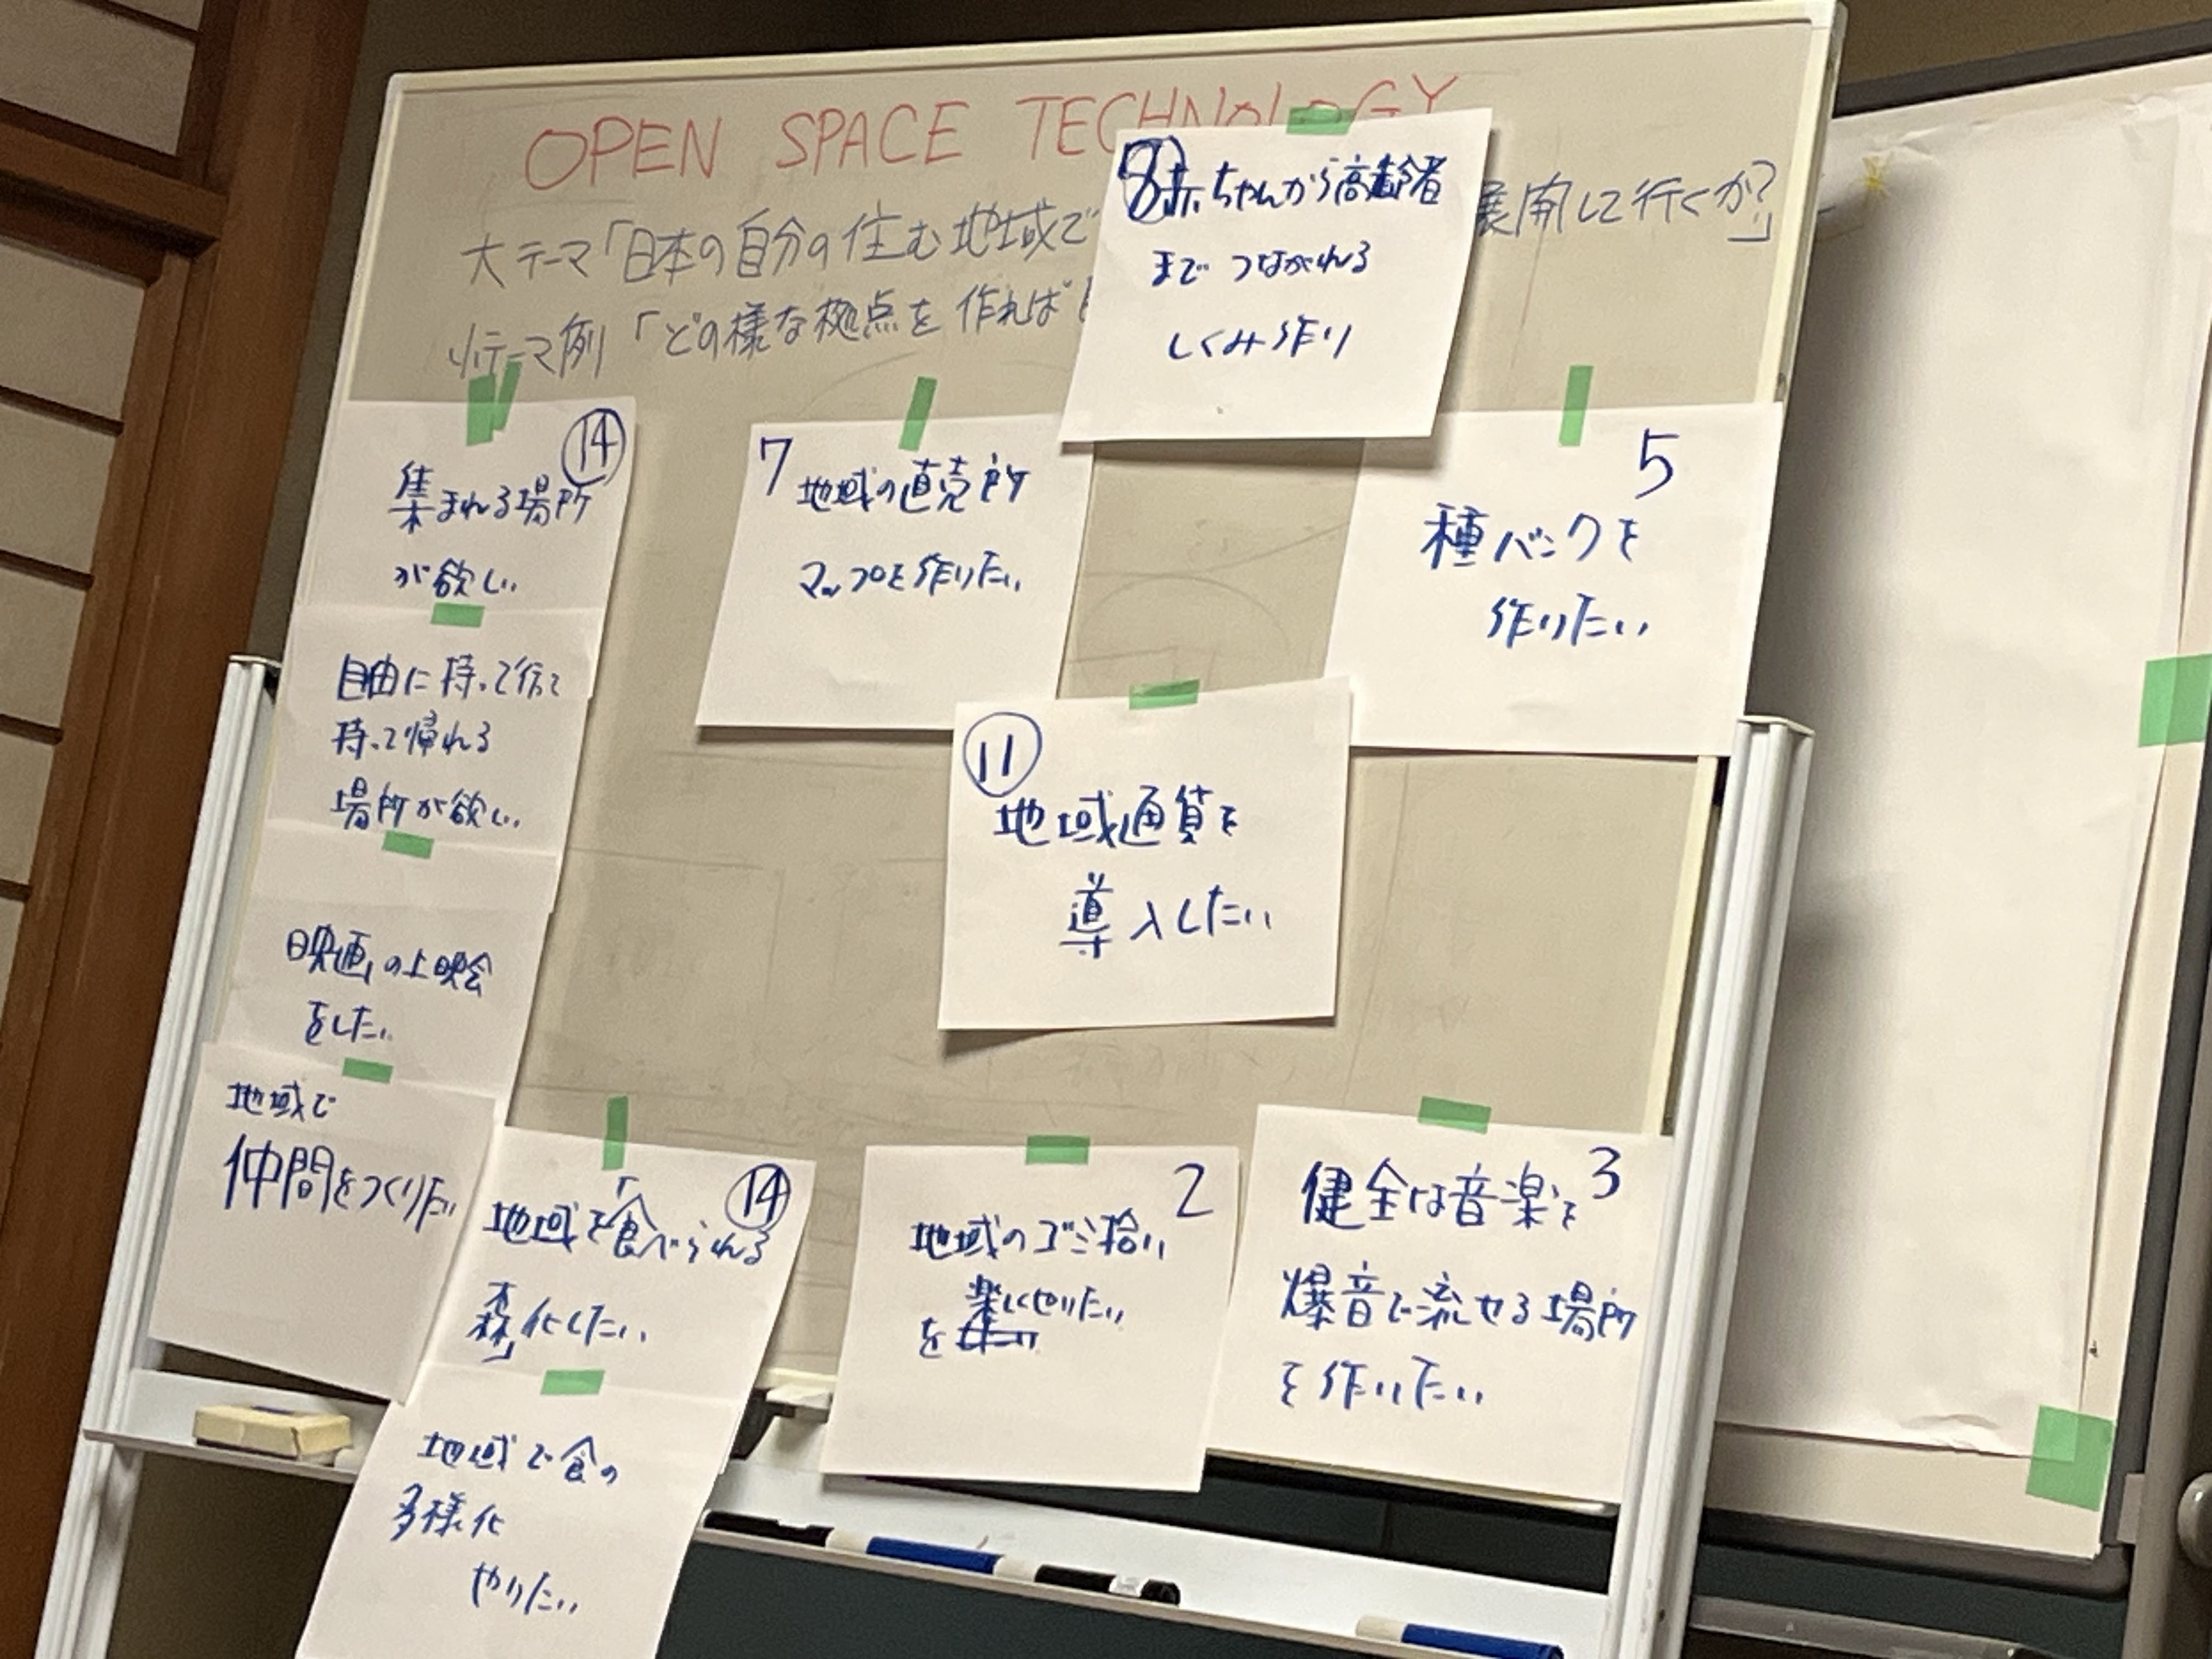 OPEN SPACE TECHNOLOGY
大テーマ「日本の自分の住む地域で
展開して行くか?」
小テーマ例「どの様な拠点を作れば
⑧赤ちゃんから高齢者
まで つながれる
しくみ作り
⑭
集まれる場所
が欲しい
自由に持って行って
持って帰れる
場所が欲しい
映画の上映会
をしたい
地域で
仲間をつくりたい
7 地域の直売所
マップを作りたい
5
種バンクを
作りたい
⑪
地域通貨を
導入したい
⑭
地域を「食べられる
森」化したい
地域で食の
多様化
やりたい
2
地域のゴミ拾い
楽しくやりたい
を
3
健全な音楽を
爆音で流せる場所
を作りたい